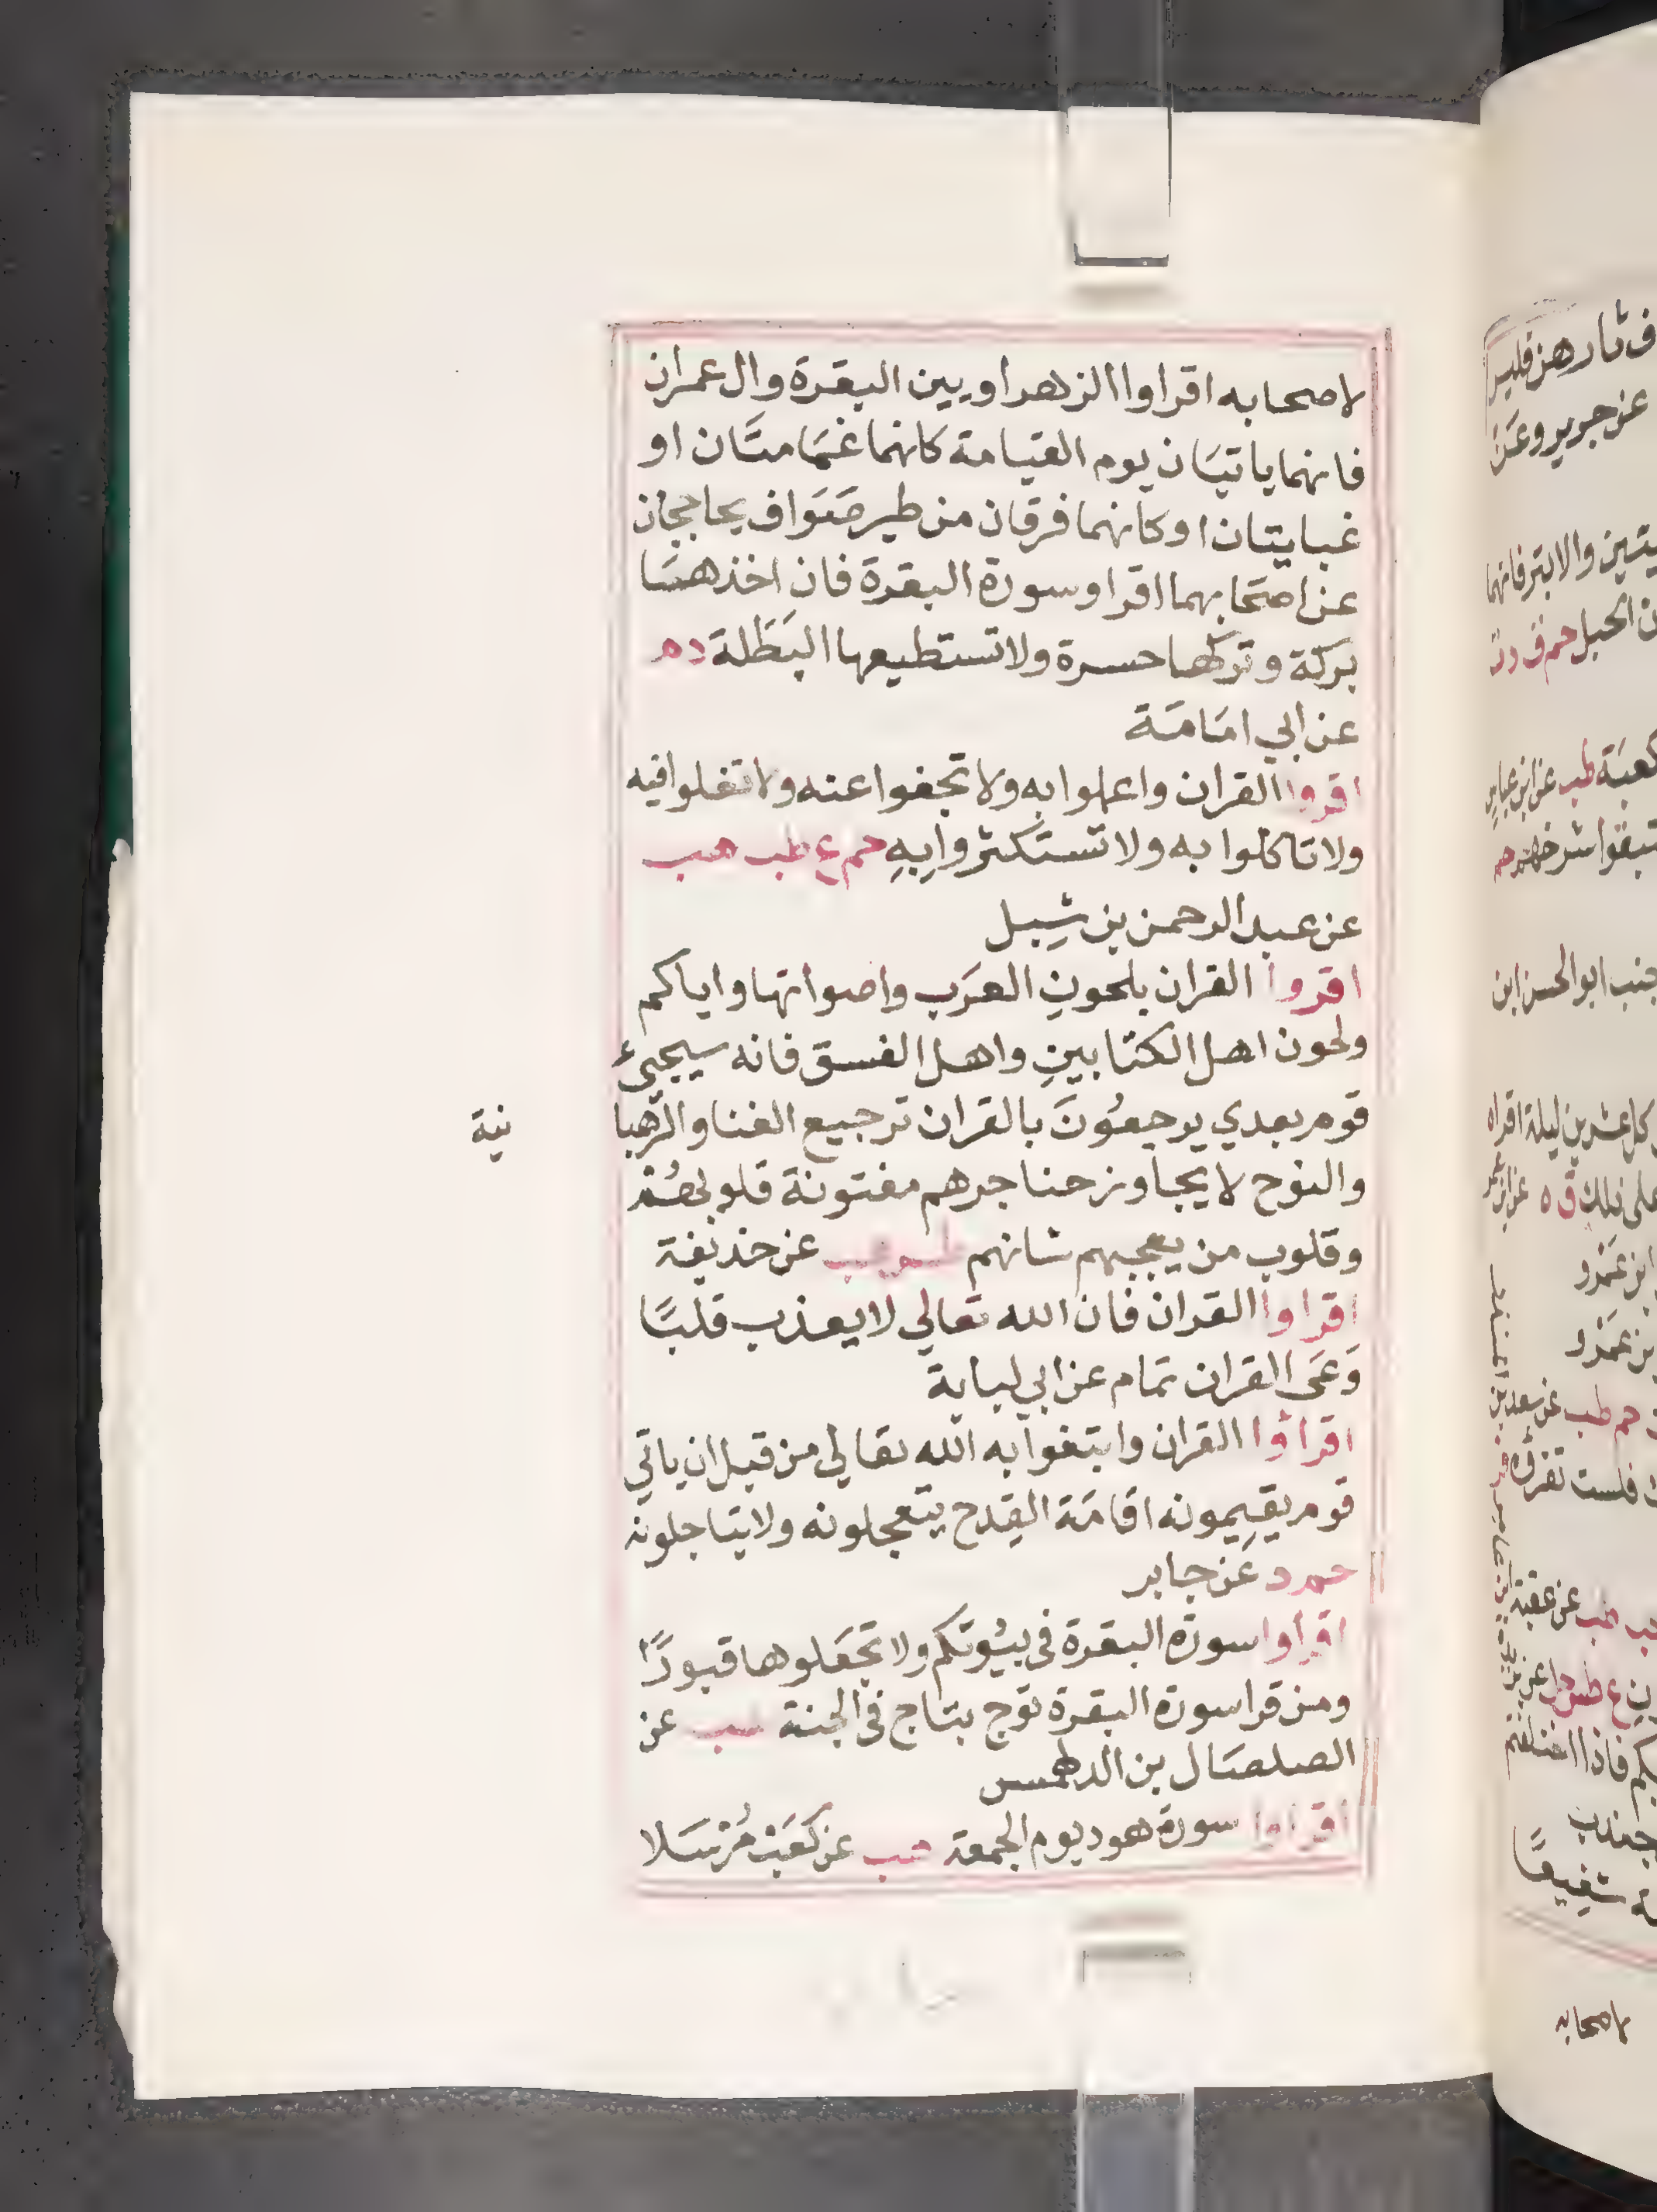 لاصحابه اقراوا الزهراويين البقرة وال عمران
فانهما ياتيان يوم القيامة كانهما غمامتان او
غيايتان او كانهما فرقان من طير صَوَاف يحاججان
عن اصحابهما اقراو سورة البقرة فان اخذهسا
بركة وتركها حسرة ولا تستطيعها البَطَلة
عن ابي امَامَة
اقروا القران واعملوا به ولا تجفوا عنه ولا تغلوا فيه
ولا تاكلوا به ولا تستكثروا بِهِ حم ع طب هب
عن عبد الرحمن بن شِبل
اقروا القران بلحونِ العَرَب واصواتها واياكم
ولحون اهل الكتابينِ واهل الفسق فانه سيجيئُ
قوم بعدي يرجعُونَ بالقران ترجيع الغنا والرهبا
نية
والنوح لا يجاوز حناجرهم مفتونة قلوبهُم
وقلوب من يعجبهم شانهم طس هب عن حذيفة
اقراوا القران فان الله تعالي لا يعذب قلبًا
وَعَى القران تمام عن ابي لبابة
اقراؤا القران وابتغوا به الله تعالي من قبل ان ياتي
قوم يقِيمونه اقامَة القِدح يتعجلونه ولا يتاجلونه
حم د عن جابر
اقراوا سورة البقرة في بيُوتكم ولا تجعَلوها قبورًا
ومن قرا سورة البقرة توج بتاج في الجنة هب عن
الصلصَال بن الدلهمس
اقراوا سورة هود يوم الجمعة هب عن كعَبْ مُرْسَلا
ف ثارهن فليس
عن جرير وعَن
والابتر فانهما
الحبل حم ق د ت
طب عن ابن عباس
ابو الحسن ابن
كل عشرين ليلة اقراه
ابن عَمْرو
بن عَمْرو
حم طب عن سعد بن
فلست تقرؤه
هب عن عقبة
فاذا اختلفتم
جندب
شفيعًا
لاصحابه